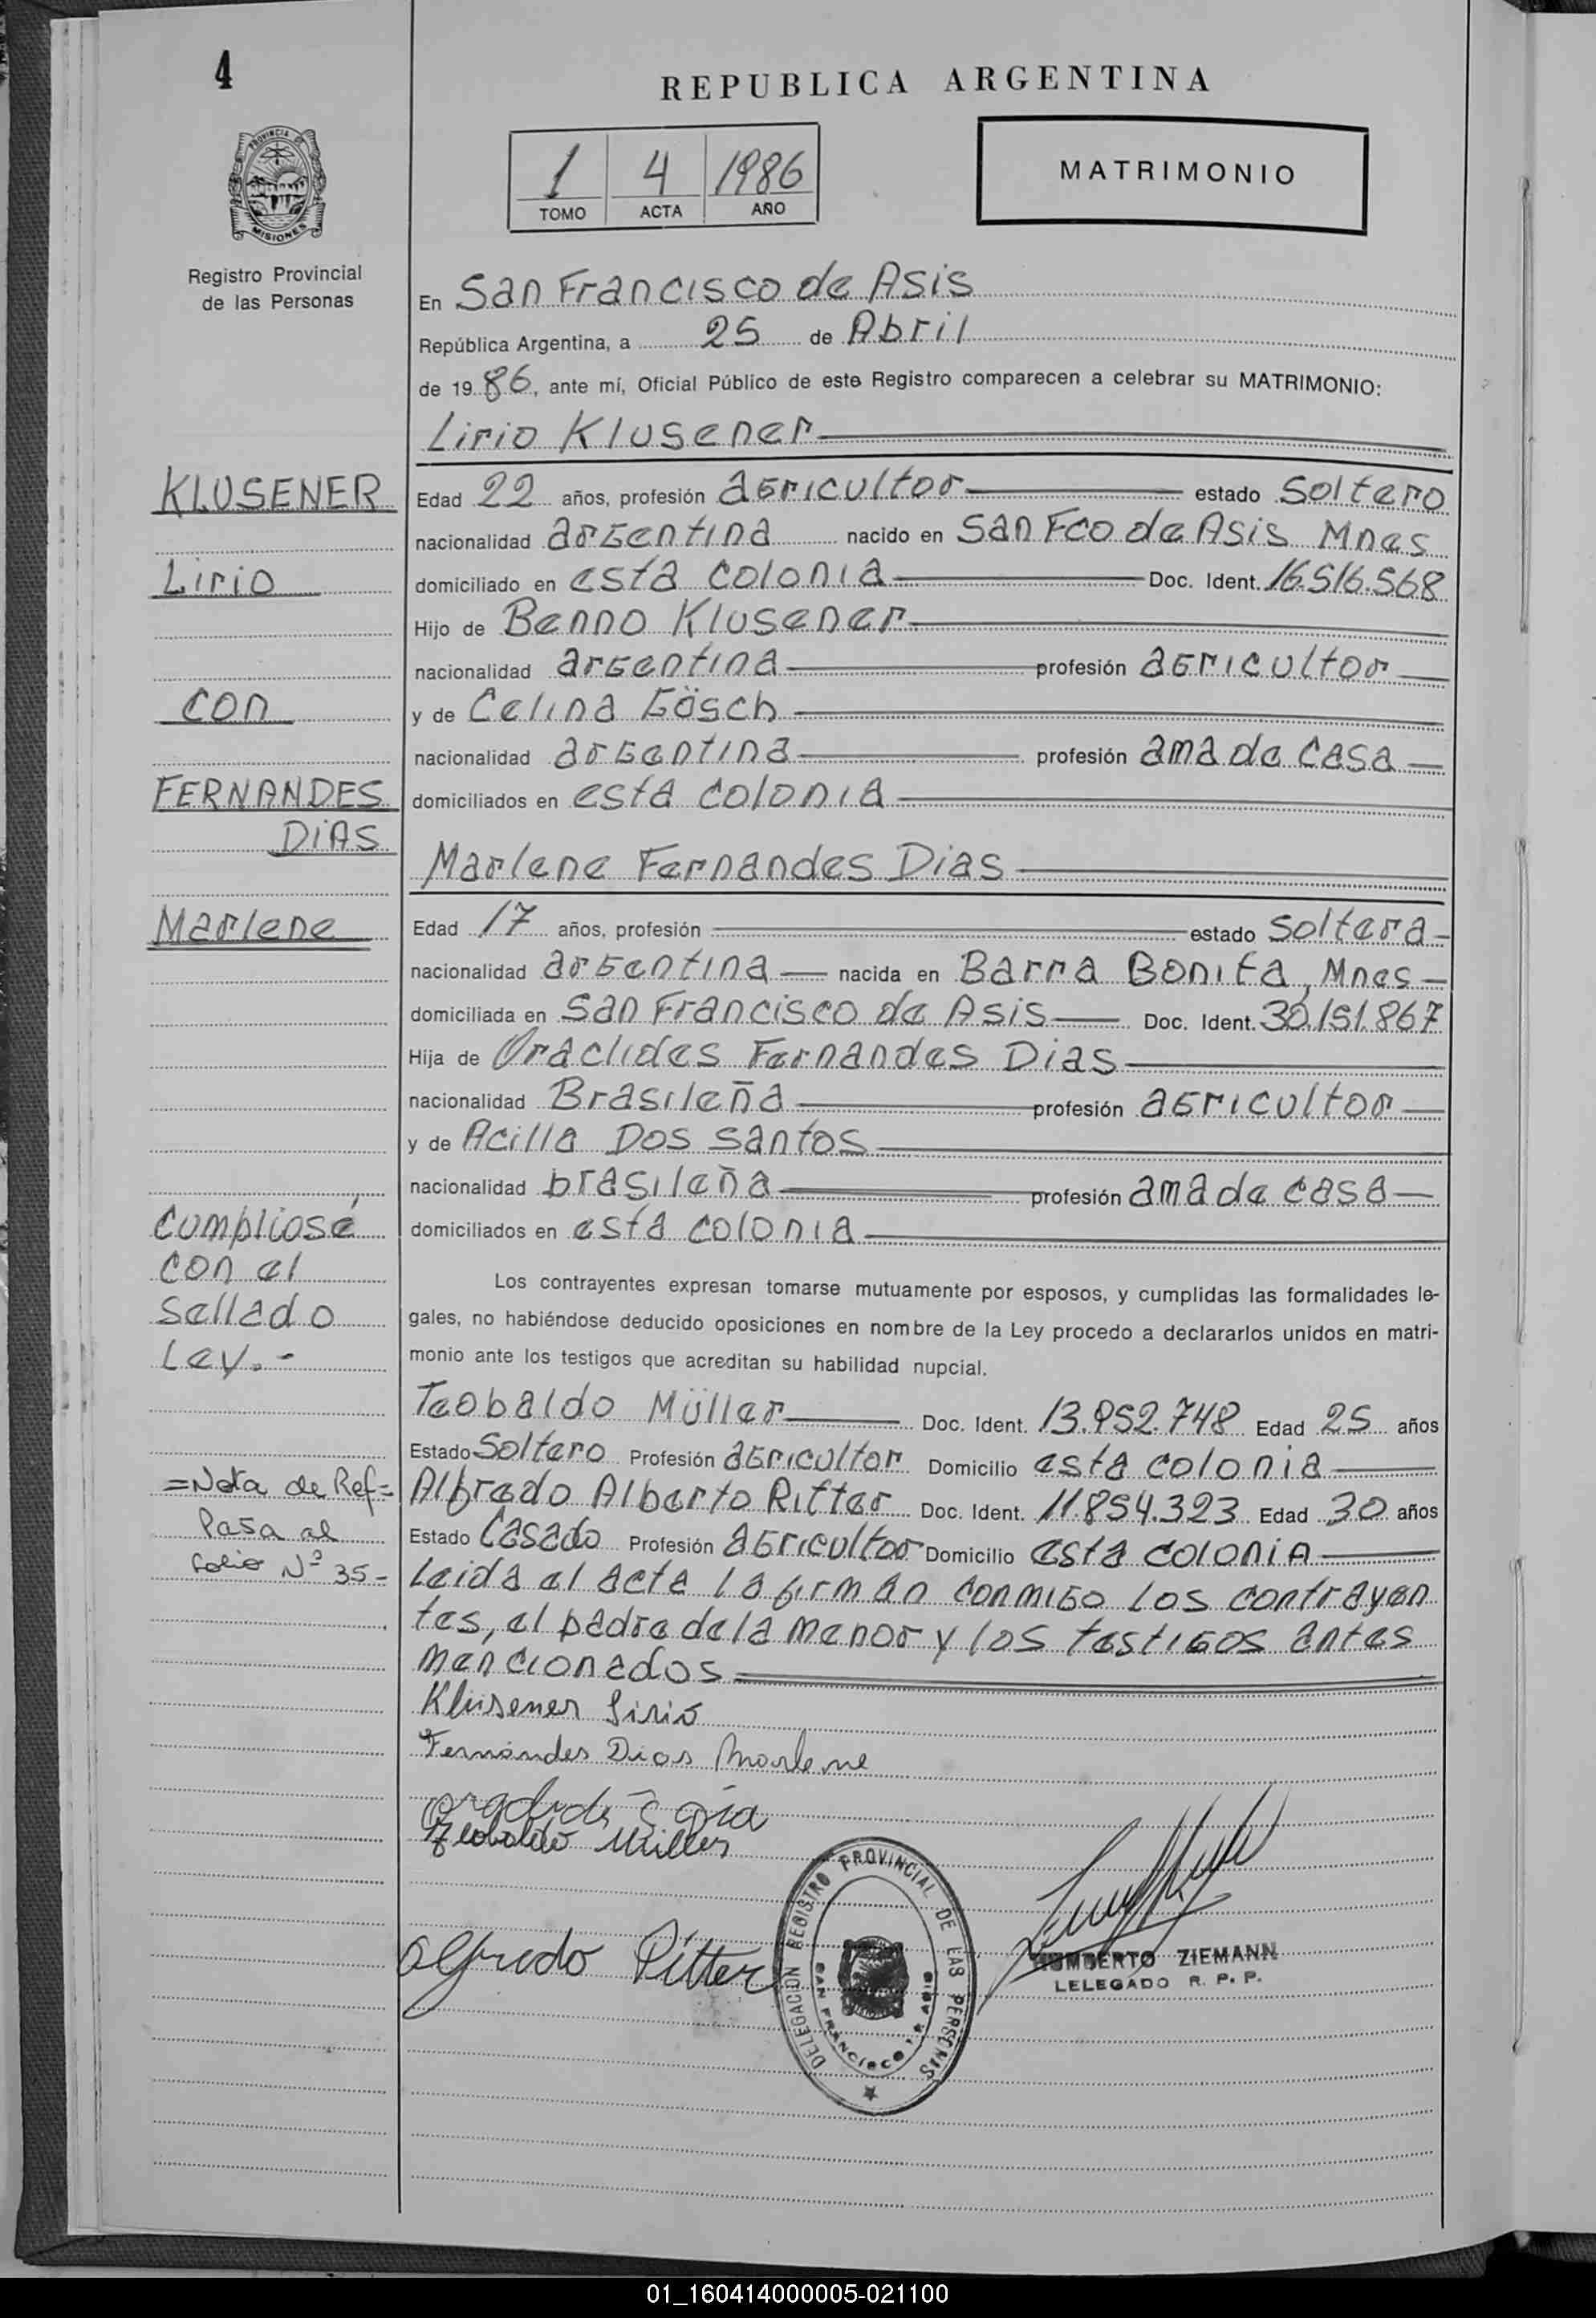 4
REPUBLICA ARGENTINA
1 4 1986
TOMO ACTA AÑO
MATRIMONIO
PROVINCIA DE
MISIONES
Registro Provincial
de las Personas
En San Francisco de Asis
República Argentina, a 25 de Abril
de 1986, ante mí, Oficial Público de este Registro comparecen a celebrar su MATRIMONIO:
Lirio Klusener
KLUSENER
Edad 22 años, profesión agricultor estado soltero
nacionalidad argentina nacido en San Fco de Asis Mnes
Lirio
domiciliado en esta colonia Doc. Ident. 16.516.568
Hijo de Benno Klusener
nacionalidad argentina profesión agricultor
con
y de Celina Gösch
nacionalidad argentina profesión ama de casa
FERNANDES
domiciliados en esta colonia
DIAS
Marlene Fernandes Dias
Marlene
Edad 17 años, profesión estado soltera
nacionalidad argentina nacida en Barra Bonita, Mnes
domiciliada en San Francisco de Asis Doc. Ident. 30.151.867
Hija de Oraclides Fernandes Dias
nacionalidad Brasileña profesión agricultor
y de Acilla Dos Santos
nacionalidad brasileña profesión ama de casa
Cumpliosé
domiciliados en esta colonia
con el
Los contrayentes expresan tomarse mutuamente por esposos, y cumplidas las formalidades le-
sellado
gales, no habiéndose deducido oposiciones en nombre de la Ley procedo a declararlos unidos en matri-
Ley.-
monio ante los testigos que acreditan su habilidad nupcial.
Teobaldo Müller Doc. Ident. 13.952.748 Edad 25 años
Estado Soltero Profesión agricultor Domicilio esta colonia
=Nota de Ref=
Alfredo Alberto Ritter Doc. Ident. 11.854.323 Edad 30 años
Pasa al
Estado Casado Profesión agricultor Domicilio esta colonia
folio Nº 35-
Leida el acta la firman conmigo los contrayen
tes, el padre de la menor y los testigos antes
mencionados
Klüsener Lirio
Fernándes Dias Marlene
Teobaldo Müller
Alfredo Ritter
DELEGACION REGISTRO PROVINCIAL DE LAS PERSONAS
SAN FRANCISCO DE ASIS
HUMBERTO ZIEMANN
LELEGADO R. P. P.
01_160414000005-021100